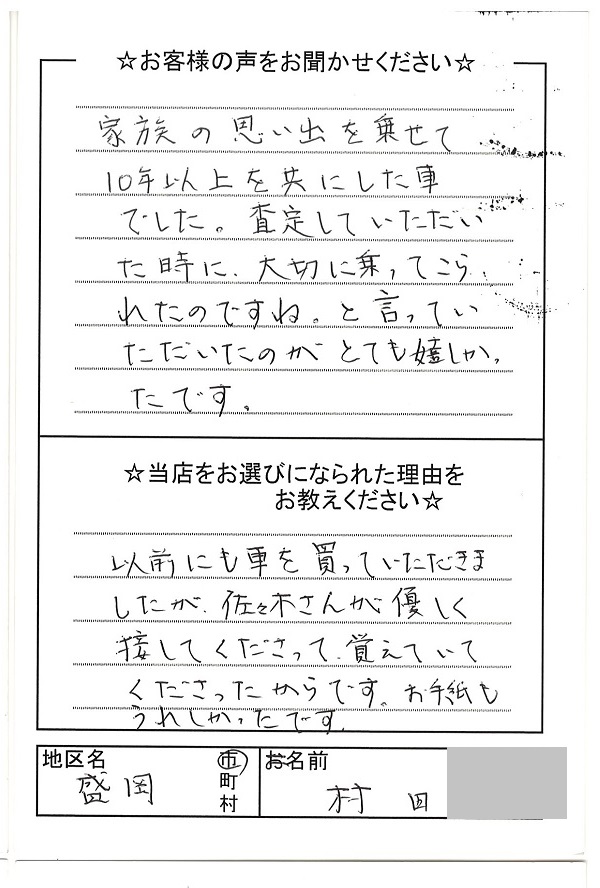 ☆お客様の声をお聞かせください☆
家族の思い出を乗せて
10年以上を共にした車
でした。査定していただい
た時に、大切に乗ってこら
れたのですね。と言ってい
ただいたのがとても嬉しかっ
たです。
☆当店をお選びになられた理由を
お教えください☆
以前にも車を買っていただきま
したが、佐々木さんが優しく
接してくださって、覚えていて
くださったからです。お手紙も
うれしかったです。
地区名 盛岡 市町村 お名前 村田